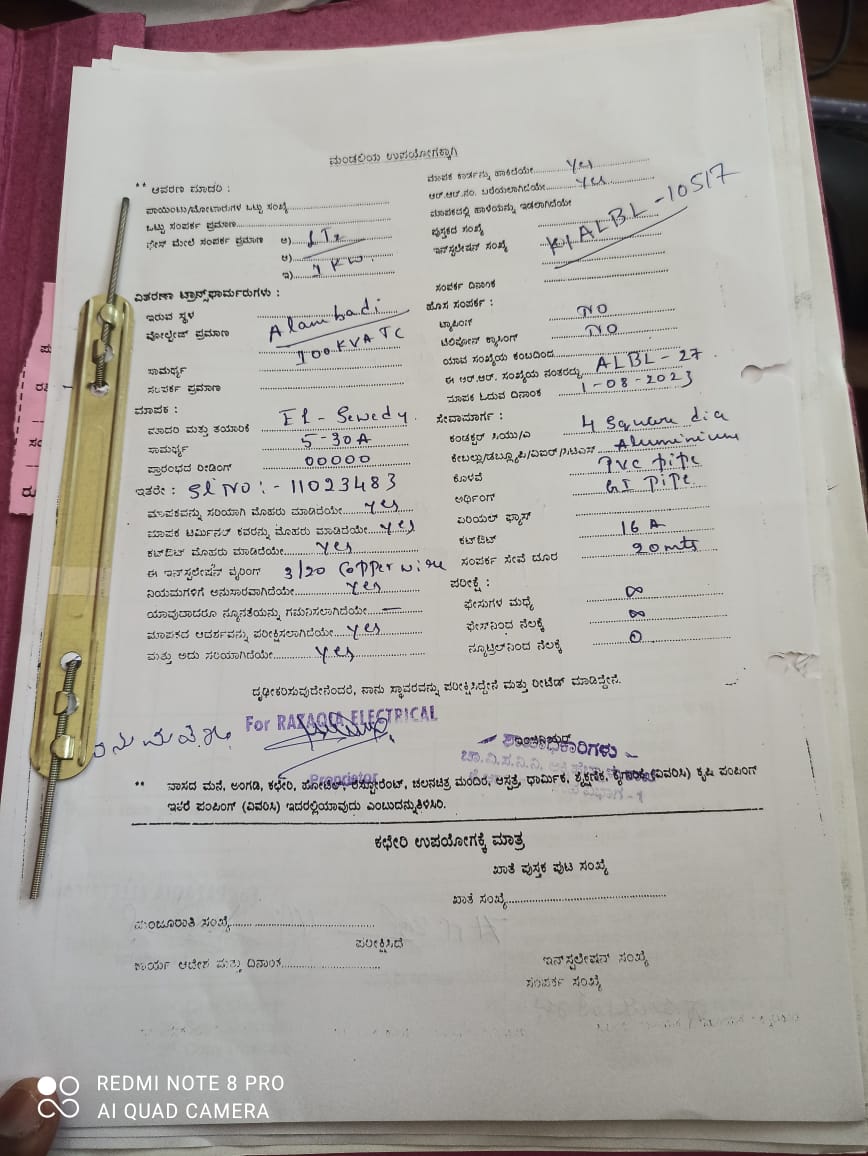 ಮಂಡಲಿಯ ಉಪಯೋಗಕ್ಕಾಗಿ
** ಆವರಣ ಮಾದರಿ :
ಪಾಯಿಂಟು/ಮೋಟಾರುಗಳ ಒಟ್ಟು ಸಂಖ್ಯೆ
ಒಟ್ಟು ಸಂಪರ್ಕ ಪ್ರಮಾಣ
ಫೇಸ್ ಮೇಲೆ ಸಂಪರ್ಕ ಪ್ರಮಾಣ ಅ) LT2
ಆ) 1 KW.
ಇ)
ವಿತರಣಾ ಟ್ರಾನ್ಸ್‌ಫಾರ್ಮರುಗಳು :
ಇರುವ ಸ್ಥಳ Alambadi
ವೋಲ್ಟೇಜ್ ಪ್ರಮಾಣ 100KVA TC
ಸಾಮರ್ಥ್ಯ
ಸಂಪರ್ಕ ಪ್ರಮಾಣ
ಮಾಪಕ :
ಮಾದರಿ ಮತ್ತು ತಯಾರಿಕೆ El-Sewedy
ಸಾಮರ್ಥ್ಯ 5-30A
ಪ್ರಾರಂಭದ ರೀಡಿಂಗ್ 00000
ಇತರೇ : Sl No:- 11023483
ಮಾಪಕವನ್ನು ಸರಿಯಾಗಿ ಮೊಹರು ಮಾಡಿದೆಯೇ yes
ಮಾಪಕ ಟರ್ಮಿನಲ್ ಕವರನ್ನು ಮೊಹರು ಮಾಡಿದೆಯೇ yes
ಕಟ್‌ಔಟ್ ಮೊಹರು ಮಾಡಿದೆಯೇ yes
ಈ ಇನ್‌ಸ್ಪಲೇಷನ್ ವೈರಿಂಗ್ 3/20 Copper wire
ನಿಯಮಗಳಿಗೆ ಅನುಸಾರವಾಗಿದೆಯೇ yes
ಯಾವುದಾದರೂ ನ್ಯೂನತೆಯನ್ನು ಗಮನಿಸಲಾಗಿದೆಯೇ —
ಮಾಪಕದ ಆದರ್ಶವನ್ನು ಪರೀಕ್ಷಿಸಲಾಗಿದೆಯೇ yes
ಮತ್ತು ಅದು ಸರಿಯಾಗಿದೆಯೇ yes
ಮಾಪಕ ಕಾರ್ಡನ್ನು ಹಾಕಿದೆಯೇ Yes
ಆರ್.ಆರ್.ನಂ. ಬರೆಯಲಾಗಿದೆಯೇ Yes
ಮಾಪಕದಲ್ಲಿ ಹಾಳೆಯನ್ನು ಇಡಲಾಗಿದೆಯೇ
ಪುಸ್ತಕದ ಸಂಖ್ಯೆ
ಇನ್‌ಸ್ಪಲೇಷನ್ ಸಂಖ್ಯೆ K1ALBL-10517
ಸಂಪರ್ಕ ದಿನಾಂಕ
ಹೊಸ ಸಂಪರ್ಕ :
ಟ್ಯಾಪಿಂಗ್ NO
ಟೆಲಿಫೋನ್ ಕ್ರಾಸಿಂಗ್ NO
ಯಾವ ಸಂಖ್ಯೆಯ ಕಂಬದಿಂದ
ಈ ಆರ್.ಆರ್. ಸಂಖ್ಯೆಯ ನಂತರದ್ದು ALBL-27
ಮಾಪಕ ಓದುವ ದಿನಾಂಕ 1-08-2023
ಸೇವಾಮಾರ್ಗ :
ಕಂಡಕ್ಟರ್ ಸಿಯು/ಎ 4 Square dia
ಕೇಬಲ್ಲು/ಡಬ್ಲ್ಯೂಪಿ/ವಿಐಆರ್/ಸಿಟಿಎಸ್ Aluminium
ಕೊಳವೆ PVC pipe
ಅರ್ಥಿಂಗ್ GI pipe
ಏರಿಯಲ್ ಫ್ಯೂಸ್
ಕಟ್‌ಔಟ್ 16 A
ಸಂಪರ್ಕ ಸೇವೆ ದೂರ 20mts
ಪರೀಕ್ಷೆ :
ಫೇಸುಗಳ ಮಧ್ಯೆ ∞
ಫೇಸ್‌ನಿಂದ ನೆಲಕ್ಕೆ ∞
ನ್ಯೂಟ್ರಲ್‌ನಿಂದ ನೆಲಕ್ಕೆ 0
ದೃಢೀಕರಿಸುವುದೇನೆಂದರೆ, ನಾನು ಸ್ಥಾವರವನ್ನು ಪರೀಕ್ಷಿಸಿದ್ದೇನೆ ಮತ್ತು ರೀಟೆಡ್ ಮಾಡಿದ್ದೇನೆ.
For RAZAQIA ELECTRICAL
Proprietor
ಶಾಖಾಧಿಕಾರಿಗಳು
** ವಾಸದ ಮನೆ, ಅಂಗಡಿ, ಕಛೇರಿ, ಹೋಟೆಲ್, ರೆಸ್ಟೋರೆಂಟ್, ಚಲನಚಿತ್ರ ಮಂದಿರ, ಆಸ್ಪತ್ರೆ, ಧಾರ್ಮಿಕ, ಶೈಕ್ಷಣಿಕ, ಕೈಗಾರಿಕೆ (ವಿವರಿಸಿ) ಕೃಷಿ ಪಂಪಿಂಗ್
ಇತರೆ ಪಂಪಿಂಗ್ (ವಿವರಿಸಿ) ಇದರಲ್ಲಿಯಾವುದು ಎಂಬುದನ್ನುತಿಳಿಸಿರಿ.
ಕಛೇರಿ ಉಪಯೋಗಕ್ಕೆ ಮಾತ್ರ
ಖಾತೆ ಪುಸ್ತಕ ಪುಟ ಸಂಖ್ಯೆ
ಖಾತೆ ಸಂಖ್ಯೆ
ಮಂಜೂರಾತಿ ಸಂಖ್ಯೆ
ಪರೀಕ್ಷಿಸಿದೆ
ಕಾರ್ಯ ಆದೇಶ ಮತ್ತು ದಿನಾಂಕ
ಇನ್‌ಸ್ಪಲೇಷನ್ ಸಂಖ್ಯೆ
ಸಂಪರ್ಕ ಸಂಖ್ಯೆ
REDMI NOTE 8 PRO
AI QUAD CAMERA